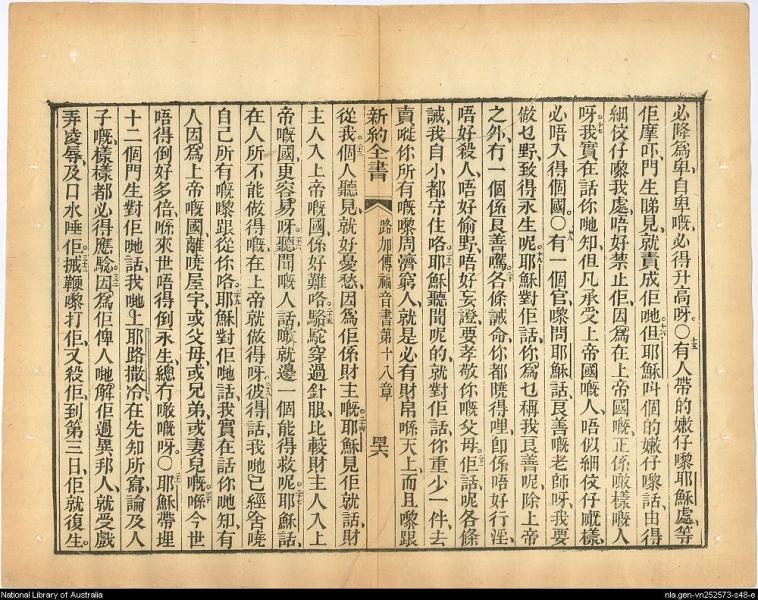 必降爲卑、自卑嘅、必得升高呀。〇有人帶的嫩仔嚟耶穌處、等
佢摩吓、門生睇見、就責成佢哋。但耶穌叫個的嫩仔嚟話、由得
細佼仔嚟我處、唔好禁止佢、因爲在上帝國嘅、正係噉樣嘅人
呀。我實在話你哋知、但凡承受上帝國嘅人、唔似細佼仔嘅樣、
必唔入得個國。〇有一個官嚟問耶穌話、良善嘅老師呀、我要
做乜野、致得永生呢。耶穌對佢話、你爲乜稱我良善呢、除上帝
之外、冇一個係良善嘅。各條誡命、你都曉得哩、卽係唔好行淫、
唔好殺人、唔好偷野、唔好妄證、要孝敬你嘅父母。佢話、呢各條
誡、我自小都守住咯。耶穌聽聞呢的、就對佢話、你重少一件、去
賣嘥你所有嘅嚟周濟窮人、就是必有財帛喺天上、而且嚟跟
新約全書 路加傳福音書第十八章
從我。個人聽見、就好憂愁、因爲佢係財主嘅。耶穌見佢就話、財
主人入上帝嘅國、係好難咯。駱駝穿過針眼、比較財主人入上
帝嘅國、更容易呀。聽聞嘅人話、噉就邊一個能得救呢。耶穌話、
在人所不能做得嘅、在上帝就做得呀。彼得話、我哋已經舍嘵
自己所有嘅嚟跟從你咯。耶穌對佢哋話、我實在話你哋知、有
人因爲上帝嘅國、離嘵屋宇、或父母、或兄弟、或妻兒嘅、喺今世
唔得倒好多倍、喺來世唔得倒永生、總冇噉嘅呀。〇耶穌帶埋
十二個門生、對佢哋話、我哋上耶路撒冷、在先知所寫、論及人
子嘅、樣樣都必得應驗。因爲佢俾人哋解佢過異邦人、就受戲
弄凌辱、及口水唾佢。㧻鞭嚟打佢、又殺佢、到第三日、佢就復生。
National Library of Australia
nla.gen-vn252573-s48-e